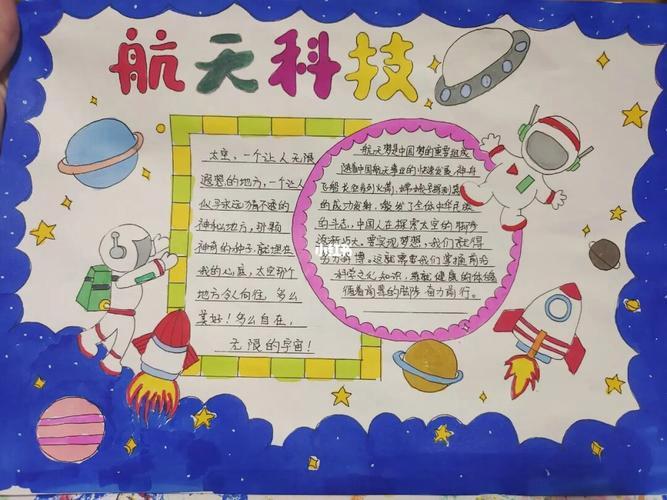 航天科技
太空,一个让人无限
遐想的地方,一个让人
似乎永远猜不透的
神秘地方,那颗
神奇的种子,就埋在
我的心底,太空那个
地方令人向往,多么
美好!多么自在,
无限的宇宙!
航天梦是中国梦的重要组成
随着中国航天事业的快速发展,神舟
飞船长空系列火箭,嫦娥号探测器
的成功发射,激发了全体中华民族
的斗志,中国人在探索太空的
要实现梦想,我们就得
努力拼搏。这就需要我们掌握
科学文化知识,练就健康的体魄
循着前辈的脚步奋力前行。
小红书